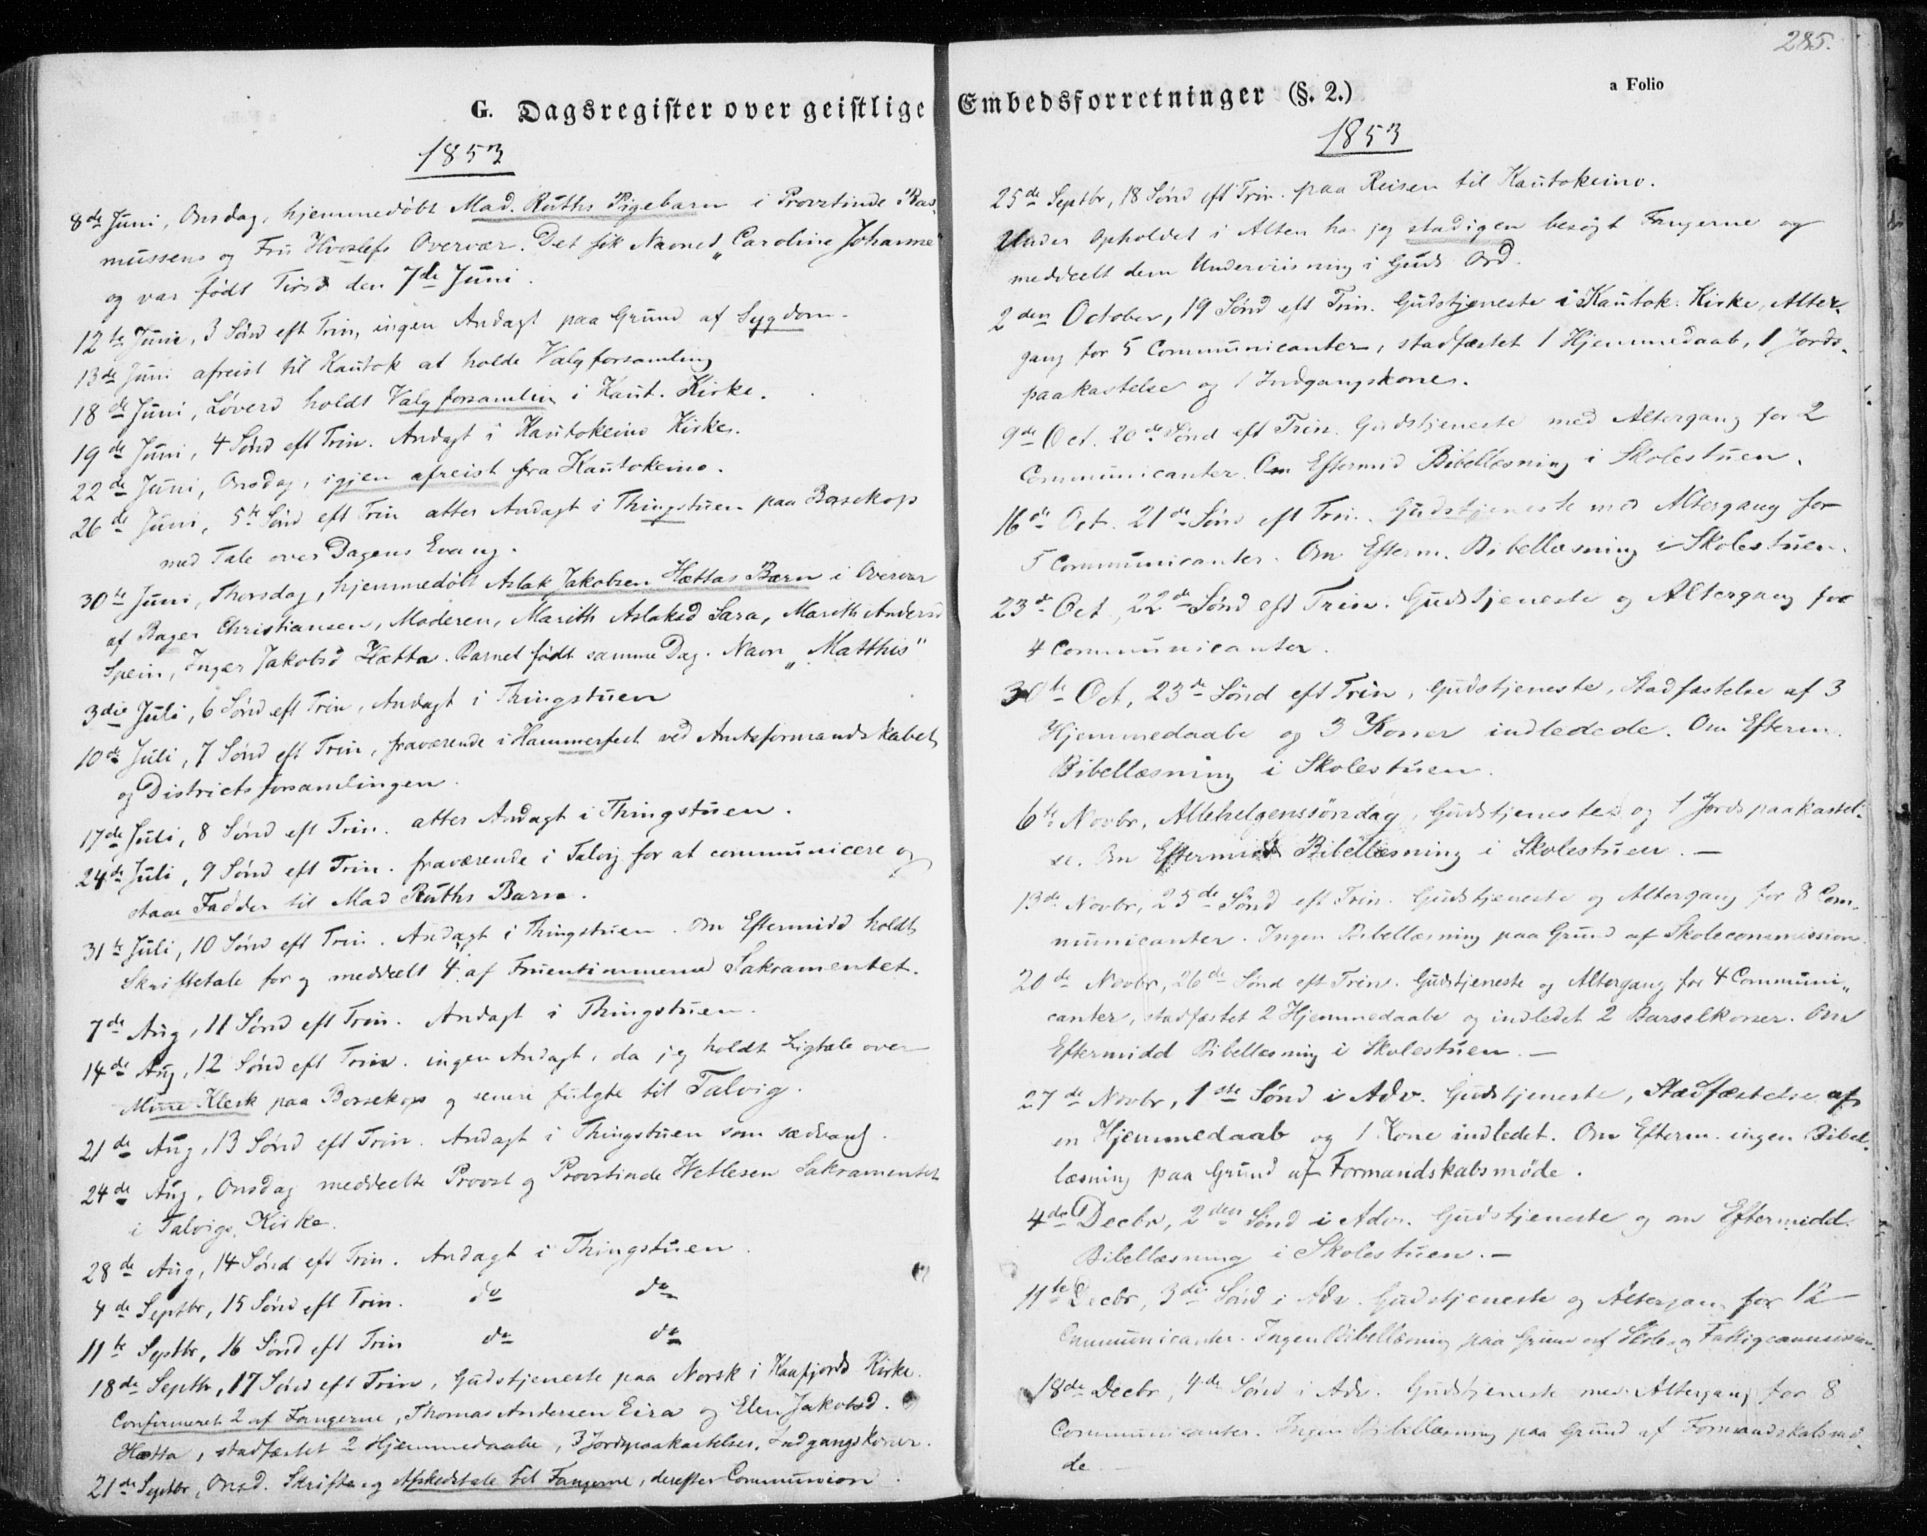 285.
G. Dagsregister over geistlige Embedsforretninger (§. 2.)
a Folio
1853
8de Juni, Onsdag, hjemmedøbt Mad. Ruths Pigebarn i Provstinde Ras-
mussens og Fru Hvoslefs Overvær. Det fik Navnet „Caroline Johanne"
og var født Tirsd den 7de Juni.
12te Juni, 3 Sønd eft Trin, ingen Andagt paa Grund af Sygdom.
13de Juni afreist til Kautok at holde Valgforsamling
18de Juni, Løverd holdt Valgforsamlin i Kaut. Kirke.
19de Juni, 4 Sønd eft Trin. Andagt i Kautokeino Kirke.
22de Juni, Onsdag, igjen afreist fra Kautokeino.
26de Juni, 5te Sønd eft Trin atter Andagt i Thingstuen paa Bosekop
med Tale over Dagens Evang.
30te Juni, Thorsdag, hjemmedøbt Aslak Jakobsen Hættas Barn i Overvær
af Bager Christiansen, Moderen, Marith Aslaksd Sara, Marith Andersd
Spein, Inger Jakobsd Hætta. Barnet født samme Dag. Navn „Matthis"
3die Juli, 6 Sønd eft Trin, Andagt i Thingstuen
10de Juli, 7 Sønd eft Trin, fraværende i Hammerfest ved Amtsformandskabet
og Districtsforsamlingen.
17de Juli, 8 Sønd eft Trin. atter Andagt i Thingstuen.
24de Juli, 9 Sønd eft Trin. fraværende i Talvig for at communicere og
staae Fadder til Mad Ruths Barn.
31te Juli, 10 Sønd eft Trin. Andagt i Thingstuen. Om Eftermidd holdt
Skriftetale for og meddeelt 4 af Fruentimmerne Sakramentet.
7de Aug, 11 Sønd eft Trin. Andagt i Thingstuen.
14de Aug, 12 Sønd eft Trin. ingen Andagt, da jeg holdt Ligtale over
Klerk paa Bossekop og senere fulgte til Talvig.
21de Aug, 13 Sønd eft Trin. Andagt i Thingstuen som sædvanl.
24de Aug, Onsdag meddeelte Provst og Provstinde Wetlesen Sakramentet
i Talvigs Kirke.
28de Aug, 14 Sønd eft Trin. Andagt i Thingstuen.
4de Septbr, 15 Sønd eft Trin. do do
11te Septbr, 16 Sønd eft Trin do do
18de Septbr, 17 Sønd eft Trin, Gudstjeneste paa Norsk i Kaafjords Kirke.
Confirmeret 2 af Fangerne, Thomas Andersen Eira og Elen Jakobsd.
Hætta, stadfæstet 2 Hjemmedaabe, 3 Jordpaakastelser, Indgangskoner.
21de Septbr, Onsd. Skrifte og Afskedstale til Fangerne, derefter Communion.
1853
25de Septbr, 18 Sønd eft Trin. paa Reisen til Kautokeino.
Under Opholdet i Alten har jeg stadigen besøgt Fangerne og
meddeelt dem Underviisning i Guds Ord.
2den October, 19 Sønd eft Trin. Gudstjeneste i Kautok. Kirke, Alter-
gang for 5 Communicanter, stadfæstet 1 Hjemmedaab, 1 Jords-
paakastelse og 1 Indgangskone.
9de Oct. 20de Sønd eft Trin. Gudstjeneste med Altergang for 2
Communicanter. Om Eftermid Bibellæsning i Skolestuen.
16de Oct. 21de Sønd eft Trin. Gudstjeneste med Altergang for
5 Communicanter. Om Efterm. Bibellæsning i Skolestuen.
23de Oct, 22de Sønd eft Trin. Gudstjeneste og Altergang for
4 Communicanter.
30te Oct, 23de Sønd eft Trin, Gudstjeneste, Stadfæstelse af 3
Hjemmedaabe og 3 Koner indledede. Om Efterm.
Bibellæsning i Skolestuen.
6te Novbr, Allehelgenssöndag, Gudstjeneste og 1 Jordspaakastel-
se. Om Eftermid Bibellæsning i Skolestuen. —
13de Novbr, 25de Sønd eft Trin. Gudstjeneste og Altergang for 8 Com-
municanter. Ingen Bibellæsning paa Grund af Skolecommission.
20de Novbr, 26de Sønd eft Trin. Gudstjeneste og Altergang for 4 Communi-
canter, stadfæstet 2 Hjemmedaabe og indledet 2 Barselkoner. Om
Eftermidd Bibellæsning i Skolestuen. —
27de Novbr, 1ste Sønd i Adv. Gudstjeneste, Stadfæstelse af
en Hjemmedaab og 1 Kone indledet. Om Efterm. ingen Bibel-
læsning paa Grund af Formandskabsmöde.
4de Decbr, 2den Sønd i Adv. Gudstjeneste og om Eftermidd.
Bibellæsning i Skolestuen. —
11te Decbr, 3die Sønd i Adv. Gudstjeneste og Altergang for 12
Communicanter. Ingen Bibellæsning paa Grund af Skole og Fattigcommission.
18de Decbr, 4de Sønd i Adv. Gudstjeneste med Altergang for 8
Communicanter. Ingen Bibellæsning paa Grund af Formandskabsmö-
de —